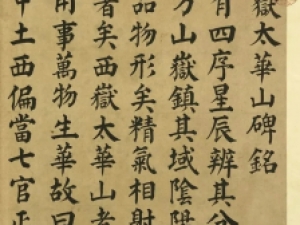 嶽太華山碑銘
有四序星辰辨其分
方山嶽鎮其域陰陽
品物形矣精氣相射
者矣西嶽太華山者
用事萬物生華故曰
中土西偏當七宫正